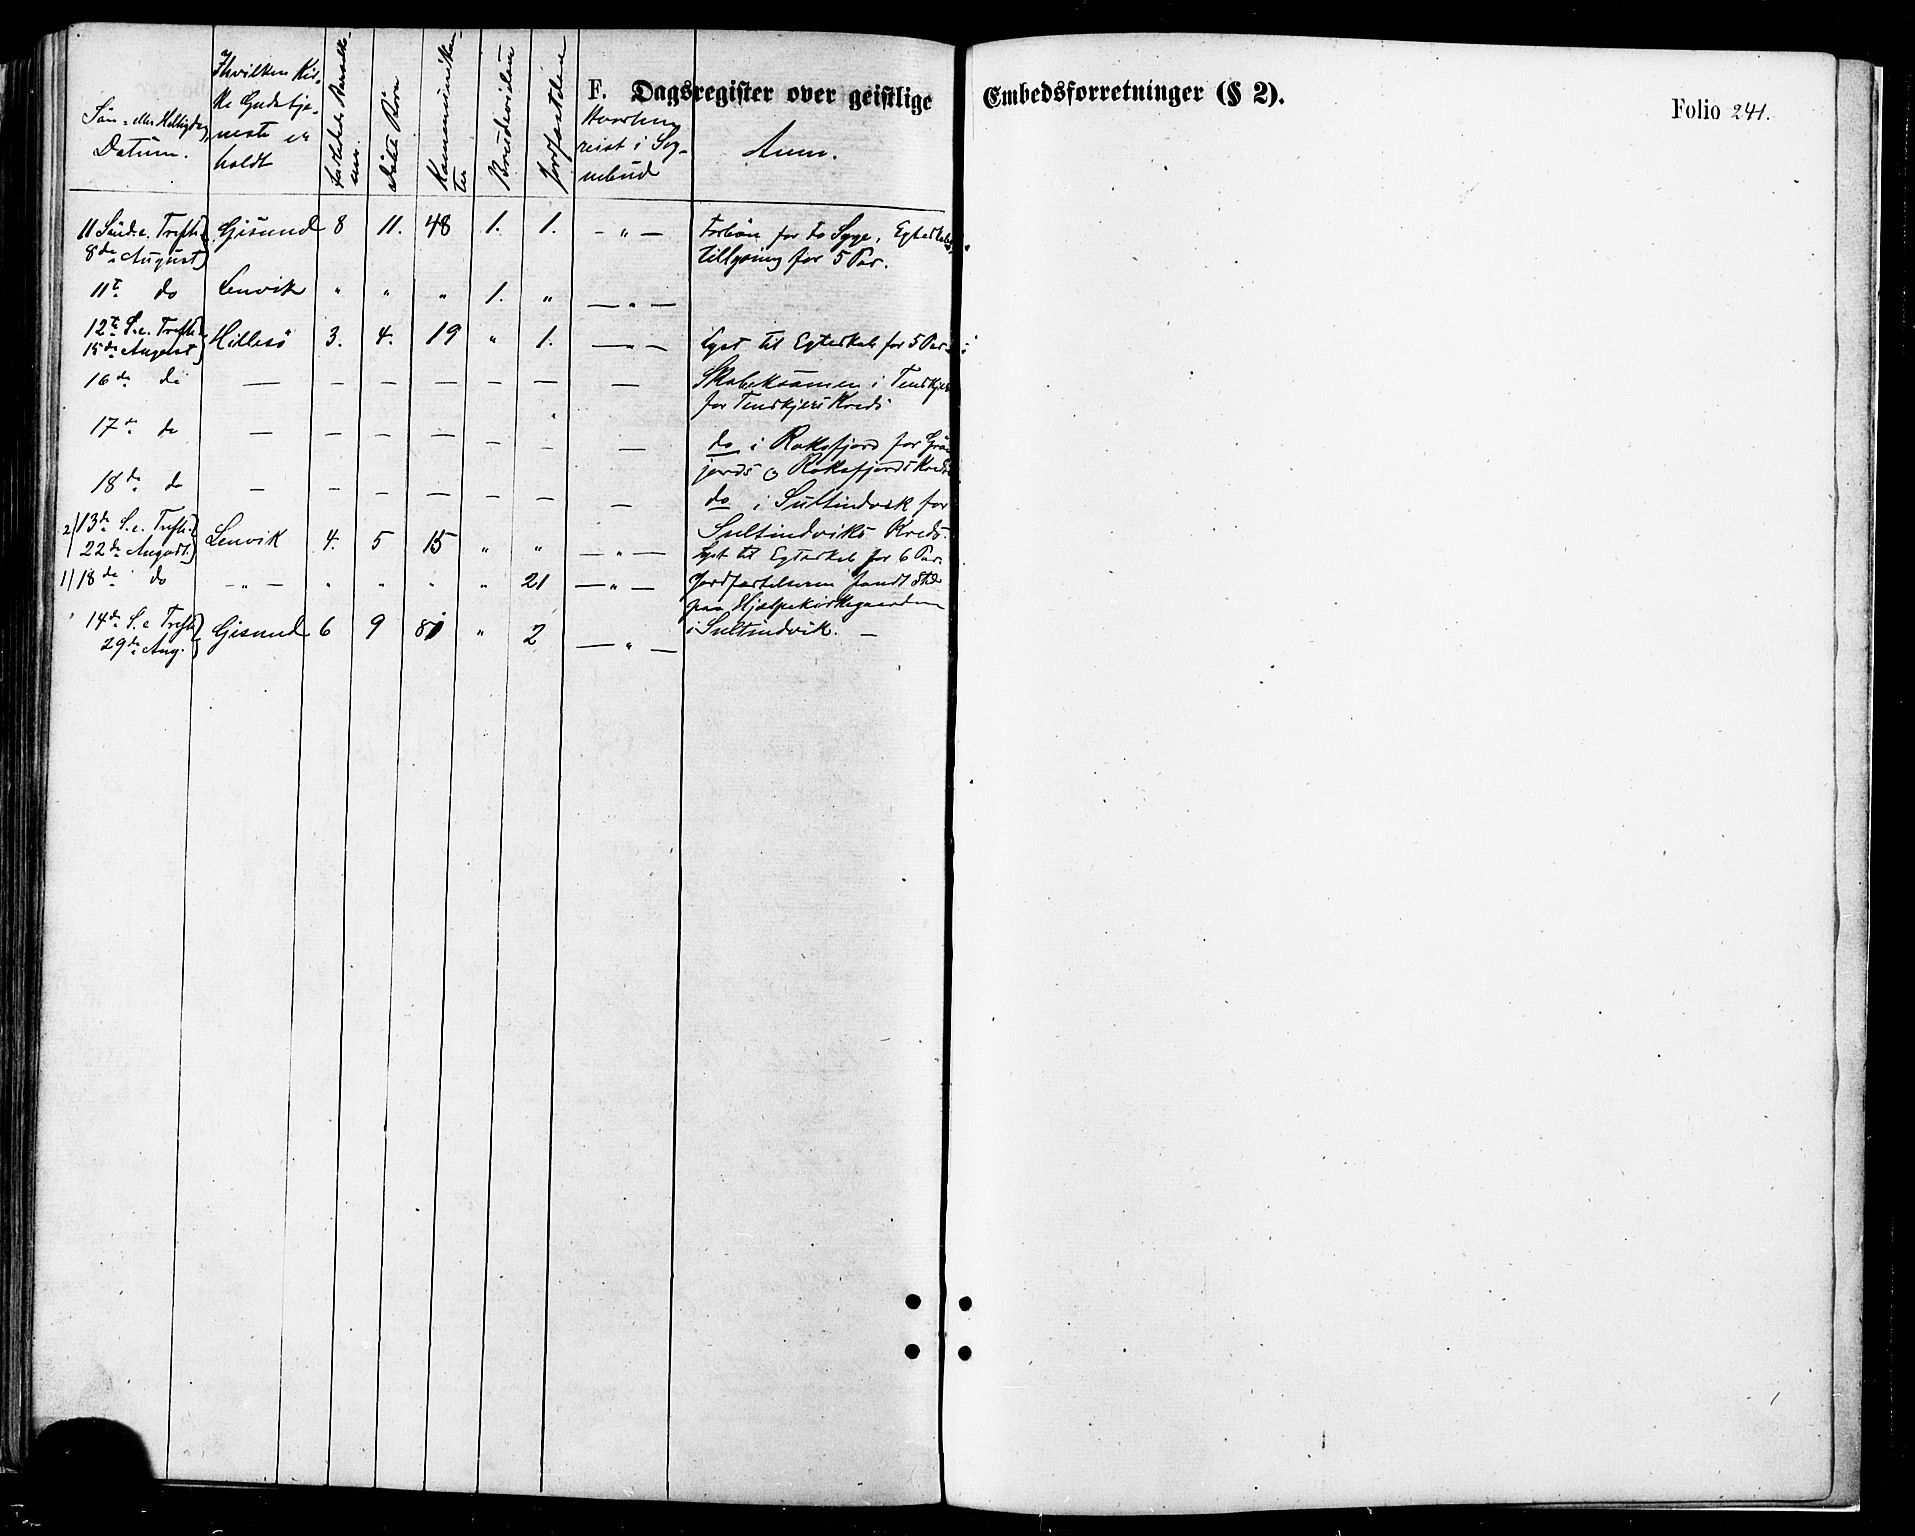 F. Dagsregister over geistlige Embedsforretninger (§ 2).
Folio 241.
Søn- eller Helligdag,
Datum.
I hvilken Kir-
ke Gudstje-
neste er
holdt
døbte Børn
Kommunikan-
ter
Brudevielser
Jordfæstelser
Hvorhen
reist i Sog-
nebud
Anm.
11 Sønd. e. Trefh. Gisund 8 11. 48 1. 1. - " - Forbøn for to Syge, Egteskabs
8de August tillysning for 5 Par.
11te do Lenvik " " " 1. " - " -
12te S. e. Trefh. Hillesø 3. 4. 19 " 1. - " - Lyst til Egteskab for 5 Par
15de August
16de do — — — — — — — Skoleksamen i Tenskjer
for Tenskjers Kreds
17de do — — — — — — — do i Roksfjord for
jords o Roksfjords Kreds
18de do — — — — — — — do i Sultindvik for
Sultindviks Kreds.
2) 13de S. e. Trefh. Lenvik 4. 5 15 " " - " - Lyst til Egteskab for 6 Par.
22de August.
1) 18de do - " - " " " " 21 - " - Jordfæstelserne fandt Sted
paa Hjælpekirkegaarden
i Sultindvik. —
14de S. e. Trefh. Gisund 6 9 81 " 2 - " -
29de Aug.